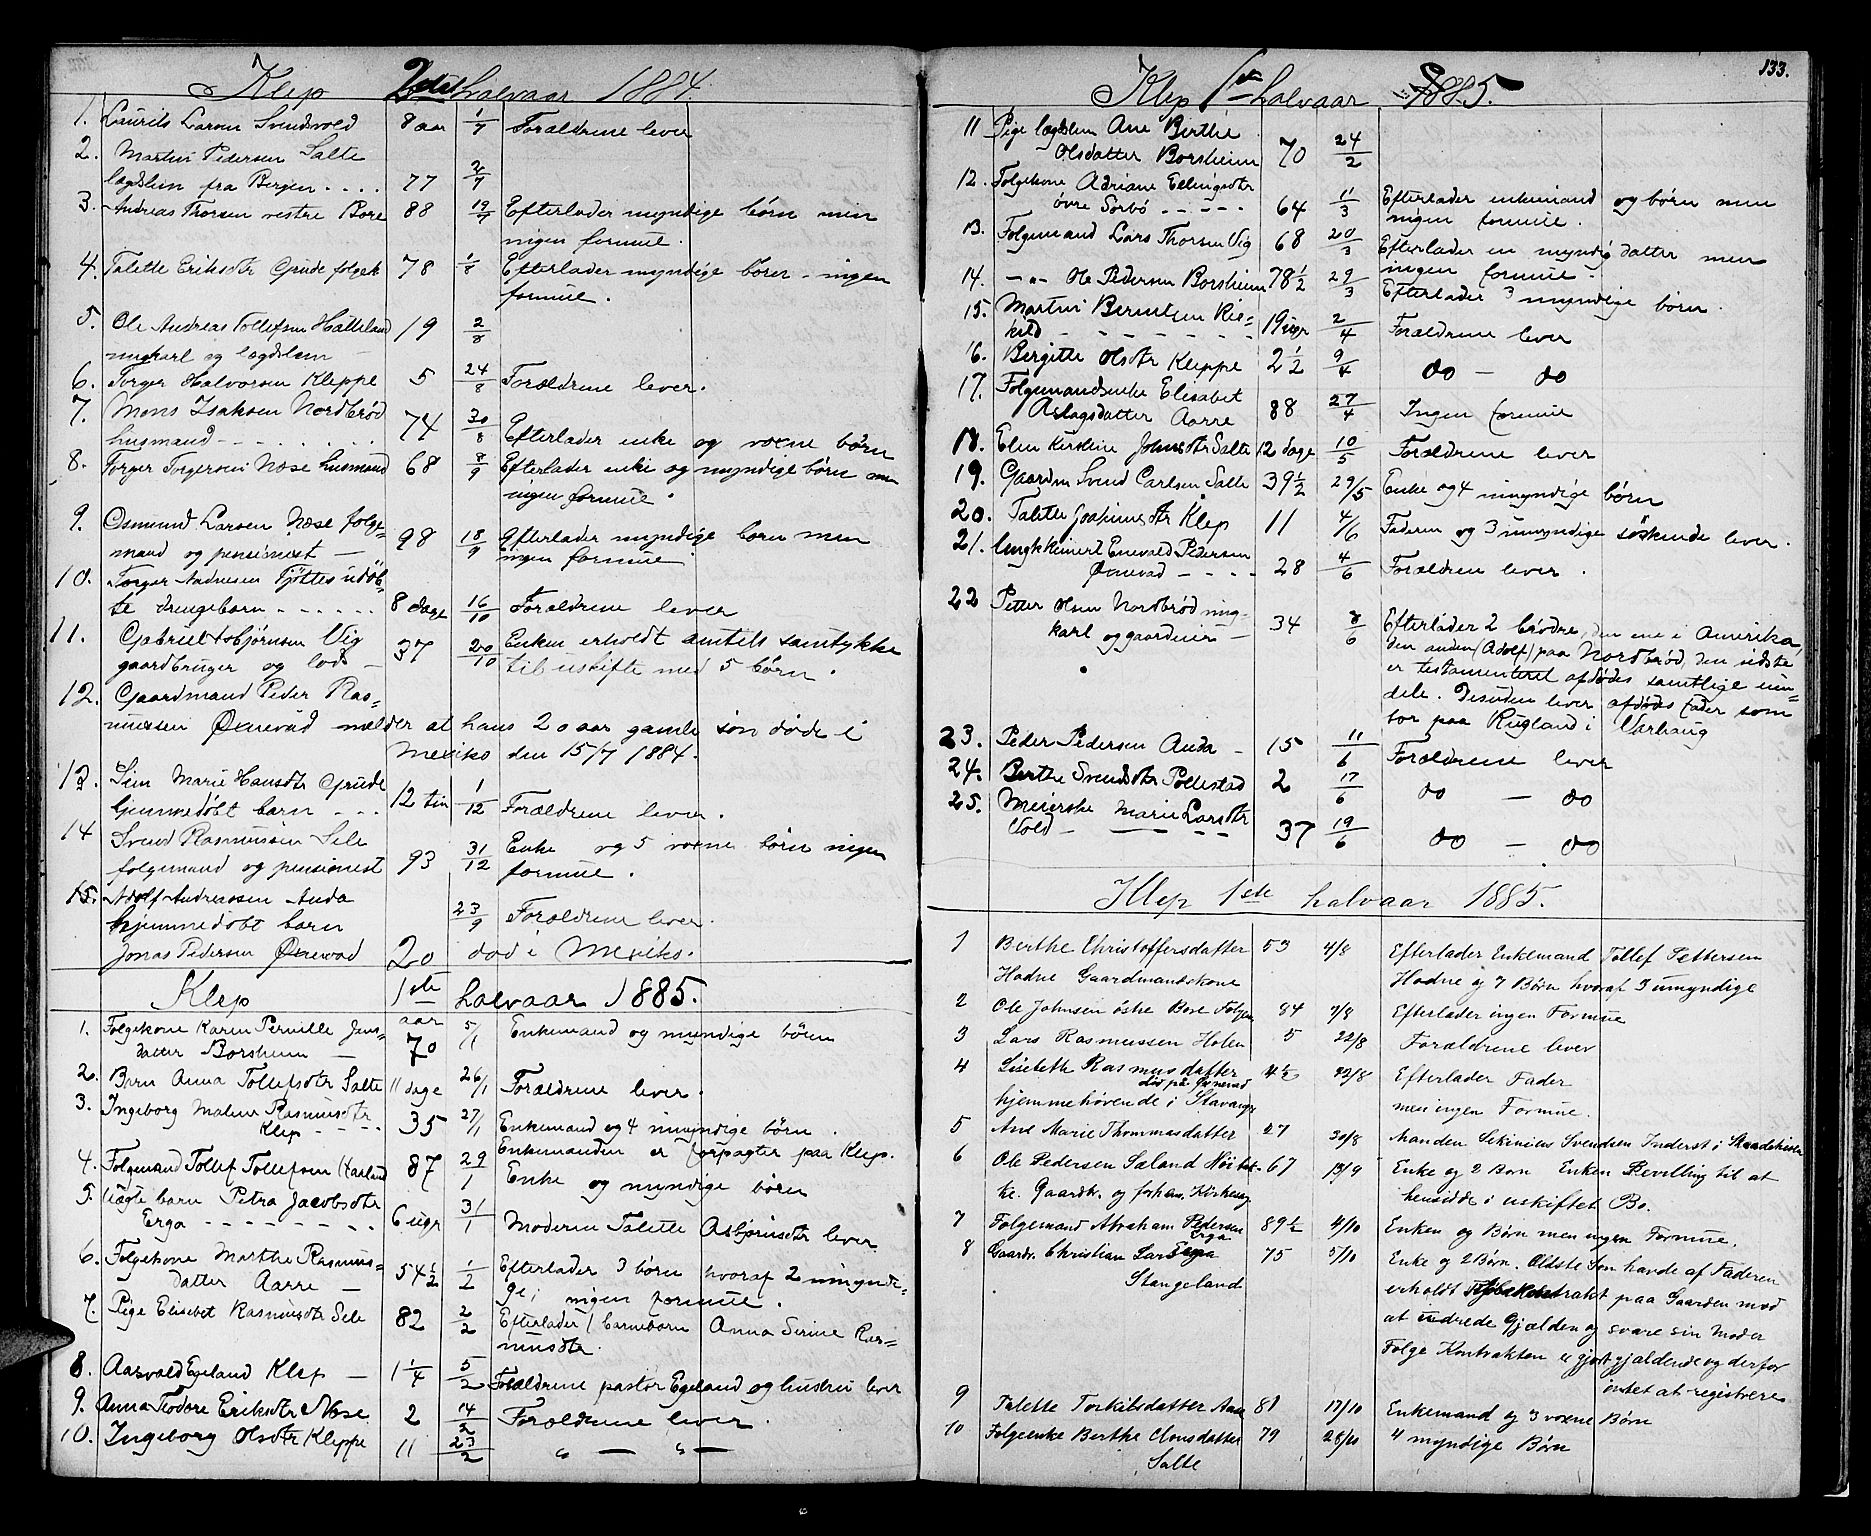 Klep 2det halvaar 1884.
1. Laurits Larsen Svendsvold 8 aar 1/7 Forældrene lever
2. Martin Pedersen Salte
lægdslem fra Bergen . . . . 77 2/7
3. Andreas Thorsen vestre Bore 88 19/7 Efterlader myndige børn men
ingen formue.
4. Talette Eriksdtr Grude folgek 78 1/8 Efterlader myndige børn - ingen
formue.
5. Ole Andreas Tollefsen Hatteland 19 2/8
ungkarl og lægdslem -
6. Torger Halvorsen Kleppe 5 24/8 Forældrene lever.
7. Mons Isaksen Nordbrød
husmand - - - - - 74 30/8 Efterlader enke og voxne børn
8. Torger Torgersen Næse husmand 68 8/9 Efterlader enke og myndige børn
ingen formue.
9. Osmund Larsen Næse folge-
mand og pensionist - 98 18/9 Efterlader myndige born men
ingen formue
10. Torger Andresen Tjøtte udøb-
te drengebarn - - - - 8 dage 16/10 Forældrene lever
11. Gabriel Asbjørnsen Vig
gaardbruger og lods - 37 20/10 Enken erholdt amtets samtykke
til uskifte med 5 børn.
12. Gaardmand Peder Ras-
mussen Øxnevad melder at hans 20 aar gamle søn døde i
Mexiko den 15/7 1884.
13. Sine Marie Hansdtr Grude
hjemmedøbt barn . . . 12 tim 1/12 Forældrene lever.
14 Svend Rasmussen Sele
folgemand og pensionist 93 31/12 Enke og 5 voxne børn ingen
formue.
15. Adolf Andreassen Anda
hjemmedøbt barn 23/9 Forældrene lever.
Jonas Pedersen Øxnevad 20 dod i Mexiko.
Klep 1ste halvaar 1885.
1. Folgekone Karen Pernille Jans- aar
datter Borsheim - 70 5/1 Enkemand og myndige børn
2. Barn Anna Tollefsdtr Salte 11 dage 26/1 Forældrene lever.
3. Ingeborg Malene Rasmusdtr
Klep - - - - 35 27/1 Enkemand og 4 umyndige børn.
Enkemanden er forpagter paa Klep.
4. Folgemand Tollef Tollefsen Haaland 87 29/1 Enke og myndige børn
5. Uægte barn Petra Jacobsdtr
Erga - - - - - - - 6 uger 31/1 Moderen Talette Asbjørnsdtr lever
6. Folgekone Marthe Rasmus-
datter Aarre - 54½ 1/2 Efterlader 3 børn hvoraf 2 umyndi-
ge, ingen formue.
7. Pige Elisabet Rasmusdtr Sele 82 2/2 Efterlader 1 barnebørn Anna Serine Ras-
musdtr.
8. Aasvald Egeland Klep - 1¼ 5/2 Forældrene pastor Egeland og hustru lever
9. Anna Todore Eriksdtr Næse 2 14/2 Forældrene lever.
10. Ingeborg Olsdtr Kleppe 11 23/2 " — " —
133.
Klep 1ste halvaar 1885.
11 Pige lægdslem Ane Berthe
Olsdatter Borsheim 70 24/2
12. Folgekone Adriane Ellingsdtr
övre Sorbö - - - - - 64 1/3 Efterlader enkemand og børn men
ingen formue.
13. Folgemand Lars Thorsen Vig 68 20/3 Efterlader en myndig datter men
ingen formue.
14. -"- Ole Pedersen Borsheim 78½ 29/3 Efterlader 3 myndige børn.
15. Martin Berentsen
- - - - - 19 uger 2/4 Forældrene lever
16. Bergitte Olsdtr Kleppe 2½ 9/4 do - do
17. Folgemandsenke Elisabet
Aslagsdatter Aarre 88 27/4 Ingen formue
18. Elen Kirstine Johnsdtr Salte 12 dage 10/5 Forældrene lever
19. Gaardm Svend Carlsen Salte 39½ 29/5 Enke og 4 umyndige børn
20. Talette Joakimsdtr Klep 11 4/6 Faderen og 3 umyndige söskende lever.
21. Ungk Reinert Enevald Pedersen
Øxnevad - - - - 28 4/6 Forældrene lever.
22 Petter Olsen Nordbrød ung-
karl og gaardeier - 34 8/6 Efterlader 2 brødre, den ene i Amerika,
den anden (Adolf) paa Nordbrød, den sidste
er testamenteret afdødes samtlige eien-
dele. Desuden lever afdødes fader som
bor paa Rugland i Varhaug
23. Peder Pedersen Anda - 15 11/6 Forældrene lever
24. Berthe Svendsdtr Pollestad 2 17/6 do - do
25. Meierske Marie Larsdtr
Vold - — — — 37 19/6 do - do
Klep 1ste halvaar 1885.
1 Berthe Christoffersdatter 53 4/8 Efterlader Enkemand Tollef Pettersen
Hodne Gaardmandskone Hodne og 7 Børn hvoraf 3 umyndige
2 Ole Johnsen östre Bore Folgem 84 7/8 Efterlader ingen Formue
3 Lars Rasmussen Holen 5 22/8 Forældrene lever
4 Lisebeth Rasmusdatter 4½ 22/8 Efterlader Fader
død på Øxnevad
hjemmehörende i Stavanger men ingen Formue.
5 Ane Marie Thommasdatter 27 30/8 Manden Sekinius Svendsen Inderst i
6 Ole Pedersen Sæland 67 13/9 Enke og 2 Børn Enken Bevilling til at
ke. Gaardb. og forhen. Kirkesang hensidde i uskiftet Bo.
7 Folgemand Abraham Pedersen 89½ 4/10 Enken og Børn men ingen Formue.
Erga
8 Gaardbr. Christian Larsen 75 5/10 Enke og 2 Børn. Oldste Søn havde af Faderen
Stangeland erholdt Kjøbekontrakt paa Gaarden mod
at udrede Gjælden og svare sin Moder
Folge Kontrakten er gjort gjældende og derfor
intet at registrere
9 Talette Torkilsdatter Aase 81 17/10 Enkemand og 3 voxne Børn
10 Folgeenke Berthe Monsdatter 79 28/10 4 myndige Børn
Salte